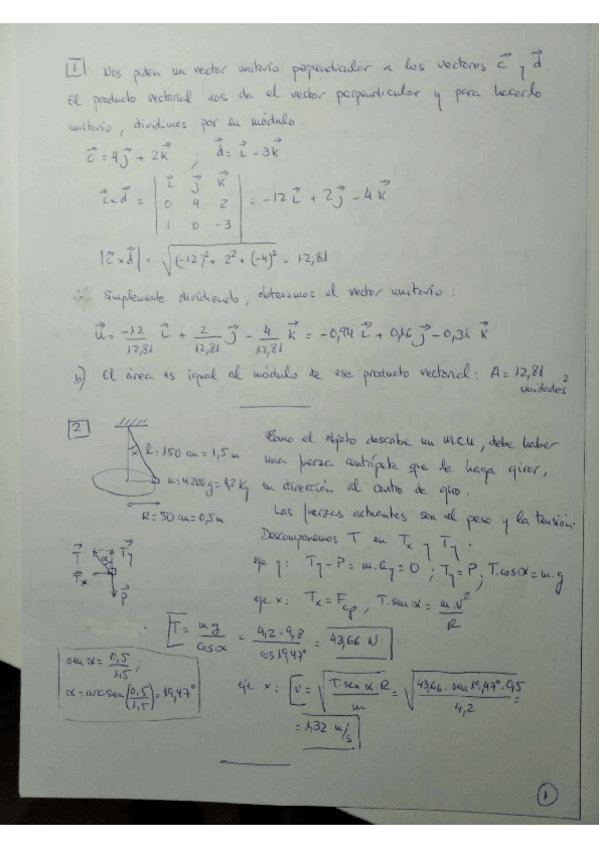 1 Nos piden un vector unitario perpendicular a los vectores c⃗ y d⃗.
El producto vectorial nos da el vector perpendicular y para hacerlo
unitario, dividimos por su módulo.
c⃗ = 4j⃗ + 2k⃗ ; d⃗ = i⃗ - 3k⃗
c⃗xd⃗ = | i⃗ j⃗ k⃗ |
| 0 4 2 | = -12i⃗ + 2j⃗ - 4k⃗
| 1 0 -3 |
|c⃗xd⃗| = √((-12)² + 2² + (-4)²) = 12,81
Simplemente dividiendo, obtenemos el vector unitario:
u⃗ = -12/12,81 i⃗ + 2/12,81 j⃗ - 4/12,81 k⃗ = -0,94 i⃗ + 0,16 j⃗ - 0,31 k⃗
b) El área es igual al módulo de ese producto vectorial: A = 12,81 unidades²
2
α
l = 150 cm = 1,5 m
m = 4200 g = 4,2 kg
R = 50 cm = 0,5 m
Como el objeto describe un MCU, debe haber
una fuerza centrípeta que le haga girar,
en dirección al centro de giro.
Las fuerzas actuantes son el peso y la tensión.
Descomponemos T en Tx y Ty.
T⃗ α T⃗y
T⃗x
P⃗
eje y: Ty - P = m.ay = 0 ; Ty = P ; T.cosα = m.g
eje x: Tx = Fcp ; T.sen α = m.v²/R
T = mg/cosα = 4,2 · 9,8/cos 19,47° = 43,66 N
sen α = 0,5/1,5 ;
α = arc sen(0,5/1,5) = 19,47°
eje x: v = √(T.sen α.R/m) = √(43,66 · sen 19,47° · 0,5/4,2) =
= 1,32 m/s
1